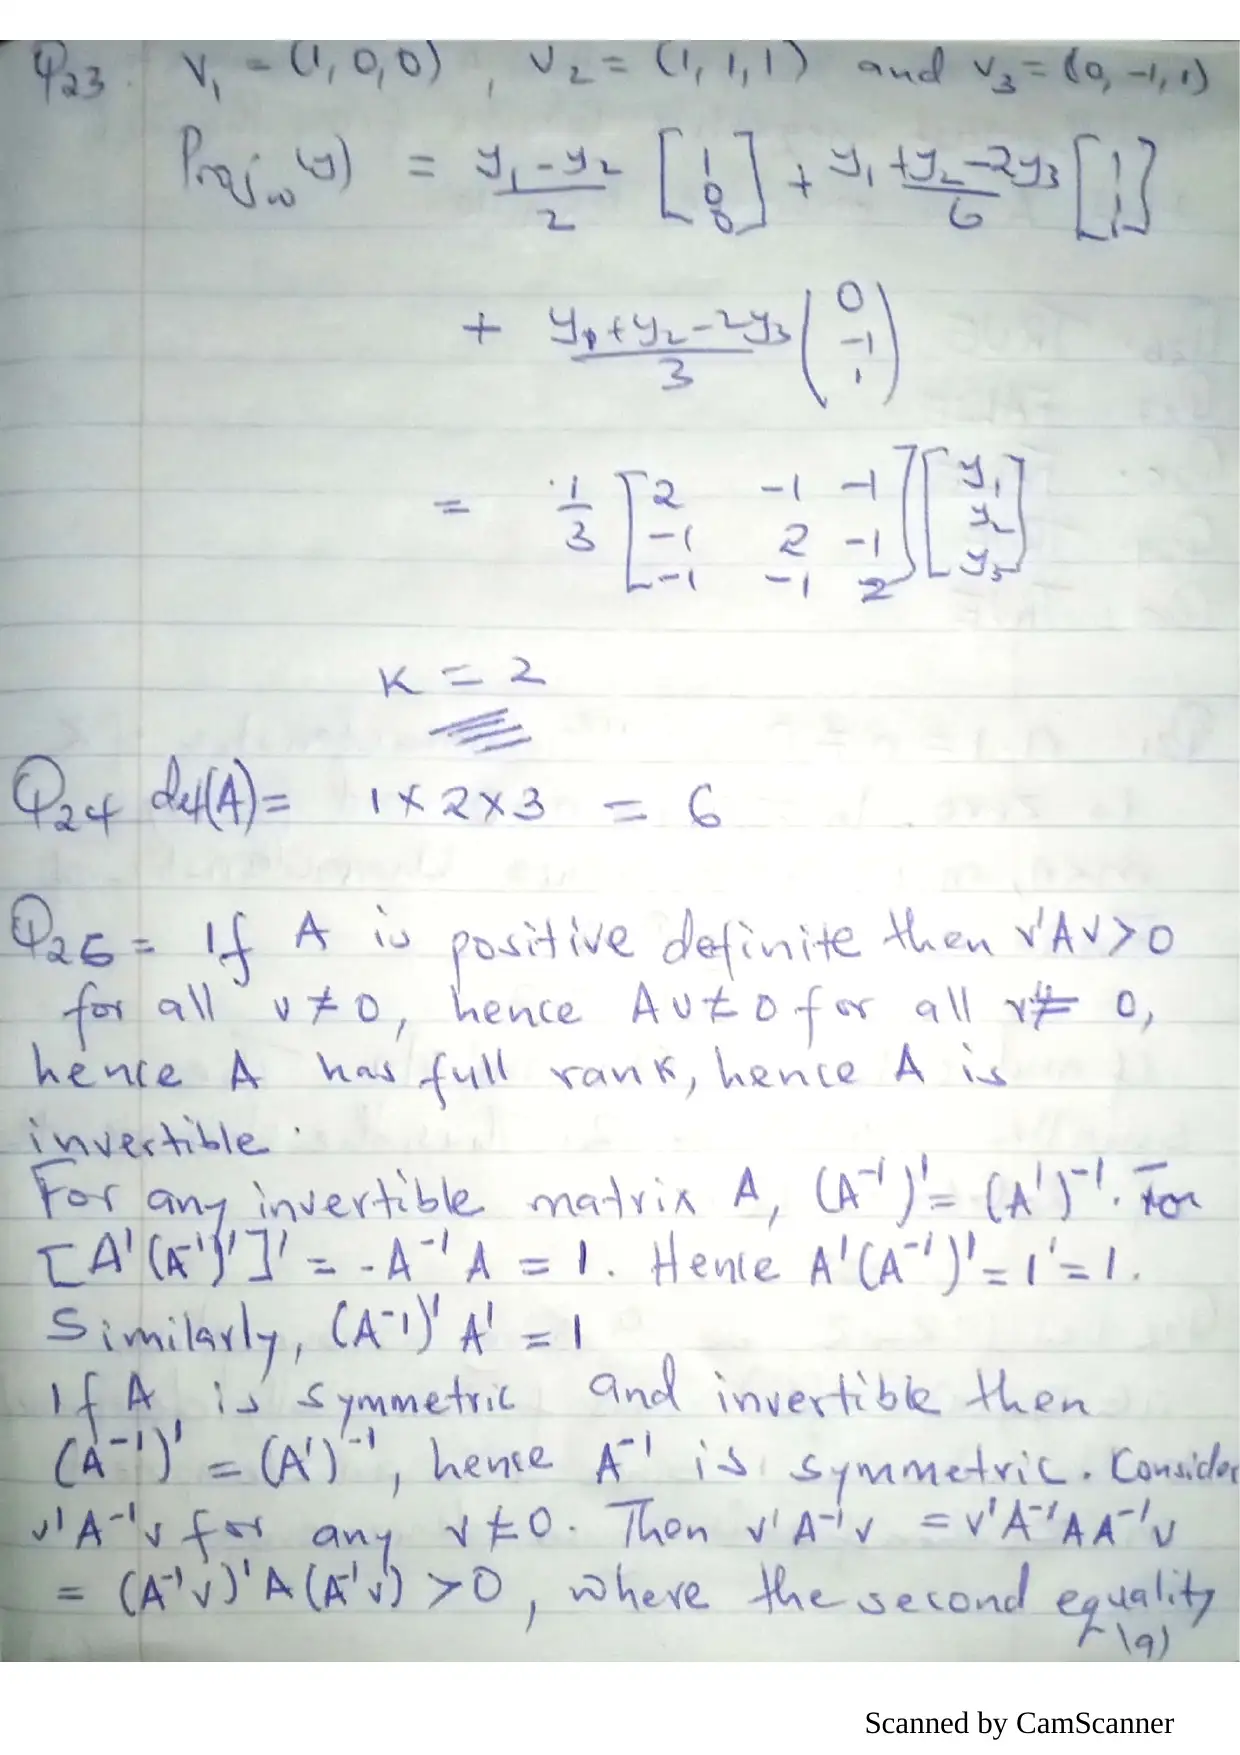 Q23. V₁ = (1, 0, 0) , V₂ = (1, 1, 1) and V₃ = (0, -1, 1)
Proj_w (y) = y₁ - y₂ / 2 [1 0 0] + y₁ + y₂ - 2y₃ / 6 [1 1 1]
+ y₁ + y₂ - 2y₃ / 3 (0 -1 1)
= 1/3 [2 -1 -1
-1 2 -1
-1 -1 2] [y₁ y₂ y₃]
K = 2
Q24 det(A) = 1 × 2 × 3 = 6
Q25 = If A is positive definite then v'Av > 0
for all v ≠ 0, hence Av ≠ 0 for all v ≠ 0,
hence A has full rank, hence A is
invertible.
For any invertible matrix A, (A⁻¹)' = (A')⁻¹. For
[A'(A⁻¹)']' = -A⁻¹A = 1. Hence A'(A⁻¹)' = 1' = 1.
Similarly, (A-1)' A' = 1
If A is symmetric and invertible then
(A⁻¹)' = (A')⁻¹, hense A⁻¹ is symmetric. Consider
v'A⁻¹v for any v ≠ 0. Then v'A⁻¹v = v'A⁻¹AA⁻¹v
= (A⁻¹v)'A(A⁻¹v) > 0, where the second equality
(9)
Scanned by CamScanner